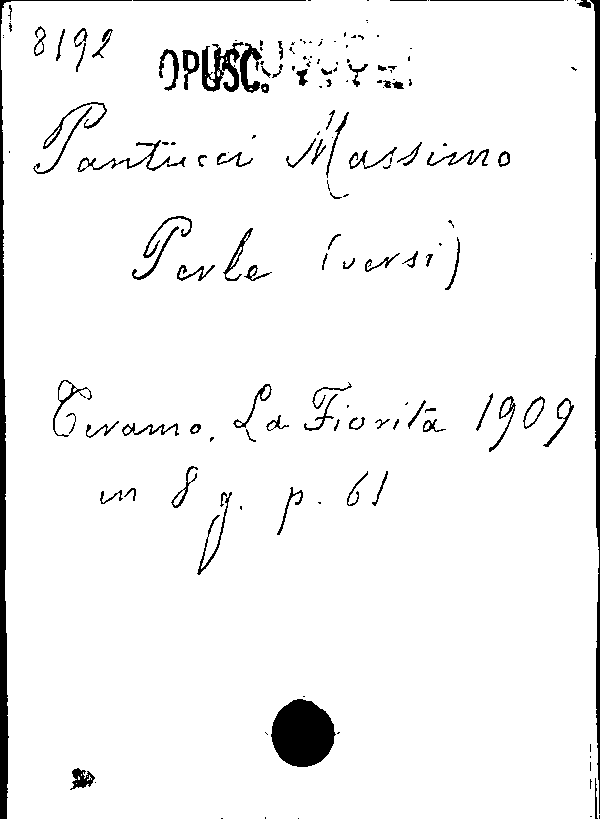 8192
OPUSC.
Pantucci Massimo
Perle (versi)
Teramo, La Fiorita 1909
in 8 g. p. 61